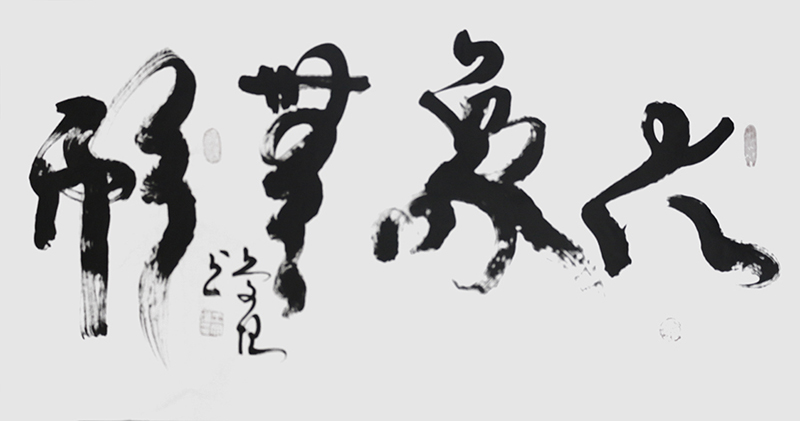 大象無形